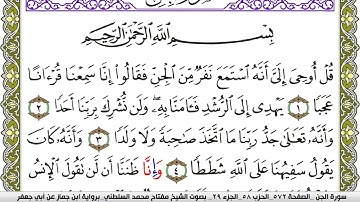 بِسْمِ ٱللَّهِ ٱلرَّحْمَٰنِ ٱلرَّحِيمِ
قُلْ أُوحِىَ إِلَىَّ أَنَّهُ ٱسْتَمَعَ نَفَرٌ مِّنَ ٱلْجِنِّ فَقَالُوٓا۟ إِنَّا سَمِعْنَا قُرْءَانًا
عَجَبًا ١ يَهْدِىٓ إِلَى ٱلرُّشْدِ فَـَٔامَنَّا بِهِۦ وَلَن نُّشْرِكَ بِرَبِّنَآ أَحَدًا ٢
وَأَنَّهُۥ تَعَٰلَىٰ جَدُّ رَبِّنَا مَا ٱتَّخَذَ صَٰحِبَةً وَلَا وَلَدًا ٣ وَأَنَّهُۥ كَانَ
يَقُولُ سَفِيهُنَا عَلَى ٱللَّهِ شَطَطًا ٤ وَإِنَّا ظَنَنَّآ أَن لَّن تَقُولَ ٱلْإِنسُ
سورة الجن . الصفحة ٥٧٢ . الحزب ٥٨ . الجزء ٢٩ . بصوت الشيخ مفتاح محمد السلطني . برواية ابن جماز عن أبي جعفر